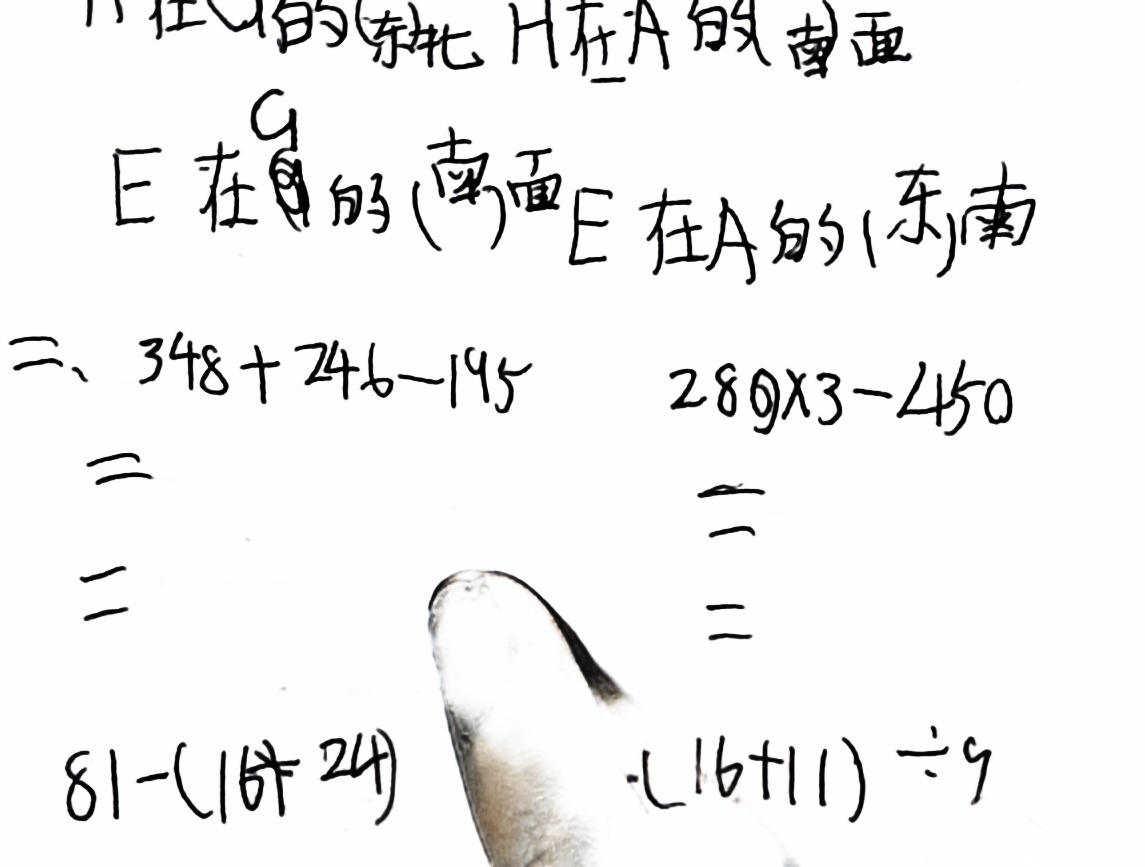 在G的(东)北 H在A的(南)面
E在G的(南)面 E在A的(东)南
二、 348+246-195 280×3-450
= =
= =
81-(16+24) (16+11)÷9